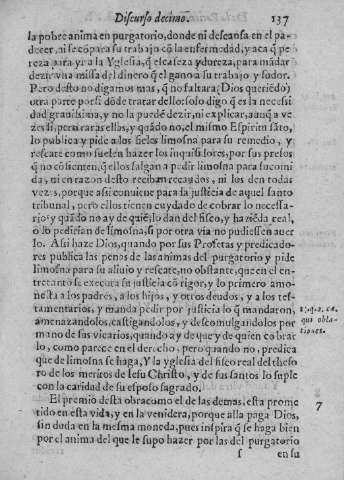 Discurso decimo. 137
la pobre anima en purgatorio, donde ni descansa en el pa-
decer, ni se cõpara su trabajo cõ la enfermedad, y aca q̃ pe-
reza para yr a la Yglesia, q̃ escaseza y dureza, para mãdar
dezir vna missa del dinero q̃ el gano a su trabajo y sudor.
Pero desto no digamos mas, q̃ no faltara (Dios queriẽdo)
otra parte por si dõde tratar dello: solo digo q̃ es la necessi
dad grauissima, y no la puedẽ dezir, ni explicar, aunq̃ a ve
zes si, pero raras ellas, y quãdo no, el mismo Espiritu sãto,
lo publica y pide a los fieles limosna para su remedio, y
rescate como suelen hazer los inquisidores, por sus presos
q̃ no cõsienten, q̃ ellos salgan a pedir limosna para su comi
da, ni en razon desto reciban recaudos, ni los den todas
vezes, porque assi conuiene para la justicia de aquel santo
tribunal, pero ellos tienen cuydado de cobrar lo necessa-
rio: y quãdo no ay de quiẽ, lo dan del fisco, y haziẽda real,
o lo pedirian de limosna, si por otra via no pudiessen auer
lo. Assi haze Dios, quando por sus Profetas y predicado-
res publica las penas de las animas del purgatorio y pide
limosna para su aliuio y rescate, no obstante, que en el en-
tretanto se executa su justicia cõ rigor, y lo primero amo-
nesta a los padres, a los hijos, y otros deudos, y a los tes-
tamentarios, y manda pedir por justicia lo q̃ mandaron,
amenazandolos, castigandolos, y descomulgandolos por
mano de sus vicarios, quando ay de que y de quien cobrar
lo, como parece en el derecho, pero quando no, predica
que de limosna se haga, Y la yglesia del fisco real del theso
ro de los meritos de Iesu Christo, y de sus santos lo suple
con la caridad de su esposo sagrado.
13.q.2. ca.
qui obla-
tiones.
El premio desta obra como el de las demas, esta prome
tido en esta vida, y en la venidera, porque alla paga Dios,
sin duda en la mesma moneda, pues inspira q̃ se haga bien
por el anima del que le supo hazer por las del purgatorio
7
s en su